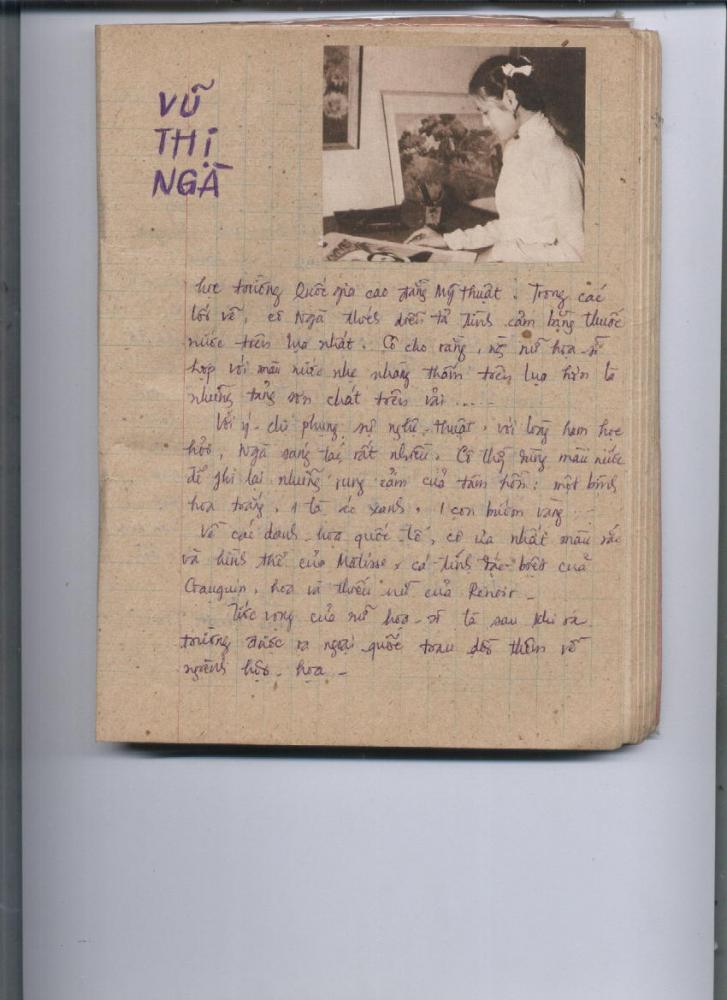 VŨ
THỊ
NGÀ
học trường Quốc gia cao đẳng Mỹ thuật. Trong các
lối vẽ, cô Ngà thích diễn tả tình cảm bằng thuốc
nước trên lụa nhất. Cô cho rằng, nữ họa-sĩ
hợp với màu nước nhẹ nhàng thấm trên lụa hơn là
những tảng sơn chát trên vải ....
Với ý-chí phụng sự nghệ-thuật, với lòng ham học
hỏi, Ngà sáng tác rất nhiều. Cô thg dùng màu nước
để ghi lại những rung cảm của tâm hồn: một bông
hoa trắng, 1 tà áo xanh, 1 con bướm vàng ...
Về các danh-họa quốc tế, cô ưa nhất màu sắc
và hình thể của Matisse, cá tính đặc-biệt của
Gauguin, hoa và thiếu nữ của Renoir -
Ước vọng của nữ họa-sĩ là sau khi ra
trường được ra ngoại quốc trau dồi thêm về
ngành hội-họa -